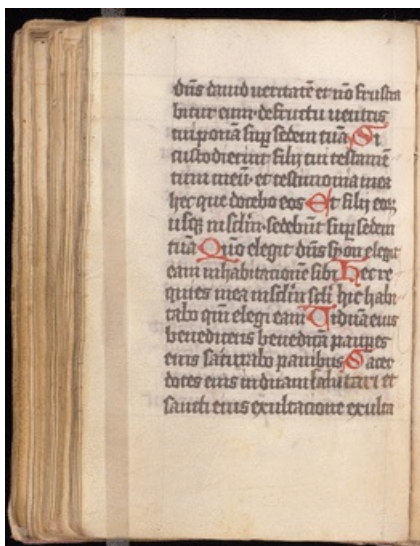 dñs dauid ueritatē et nō frustra
bitur eum de fructu uentris
tui ponā suꝑ sedem tuā Si
custodierint filij tui testamē
tum meū et testimonia mea
hec que docebo eos Et filij eoꝝ
usqꝫ in sclm̄ sedebūt suꝑ sedem
tuā Qm̄o elegit dñs syon elegit
eam in habitacionē sibi Hec re
quies mea in sclm̄ scli hic habi
tabo qm̄ elegi eam Uiduā eius
benedicens benedicā pauꝑes
eius saturabo panibus Sacer
dotes eius induam salutari et
sancti eius exultacione exulta